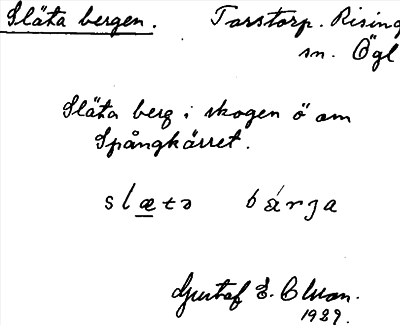 Släta bergen. Torstorp. Rising
sn. Ögl
Släta berg i skogen ö om
Spångkärret.
slætə bárʒa
Gustaf E. Olsson.
1929.